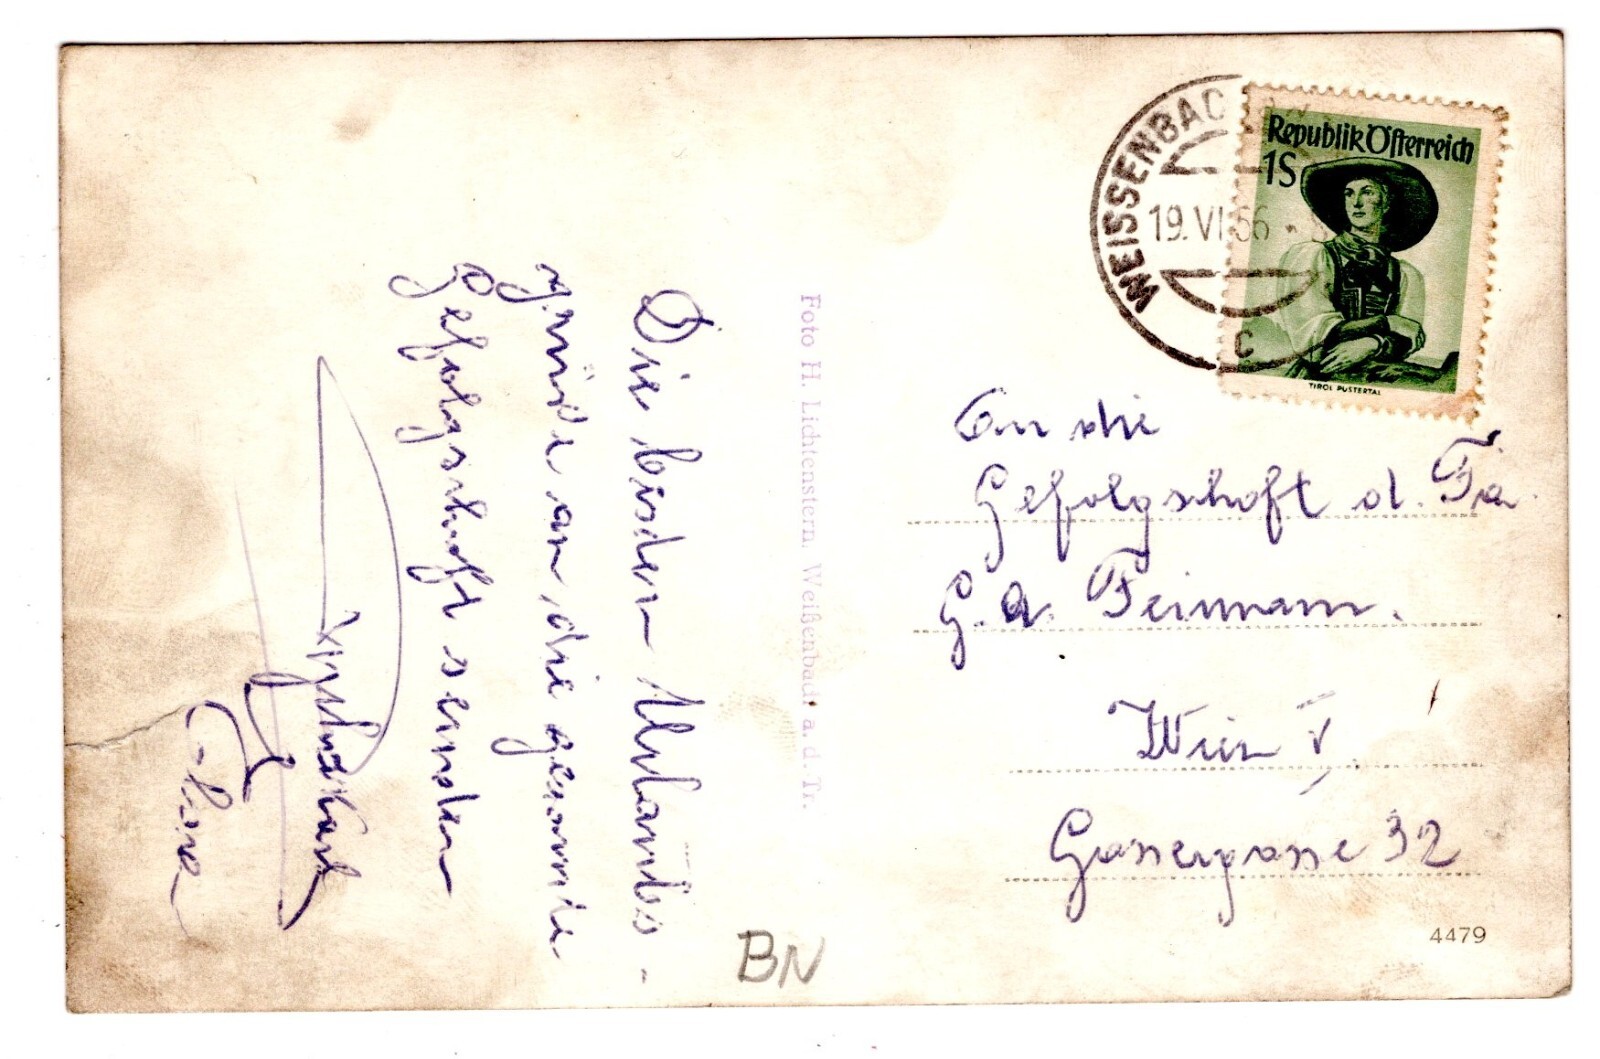 Die beiden Urlaubs-
grüße an die gesamte
Gefolgschaft senden
Foto H. Lichtenstern, Weißenbach a. d. Tr.
WEISSENBACH
19. VI. 56
C
Republik Österreich
1S
TIROL PUSTERTAL
An die
Gefolgschaft d. Fa.
G. A. Feimann.
Wien V,
Gassergasse 32
4479
BN